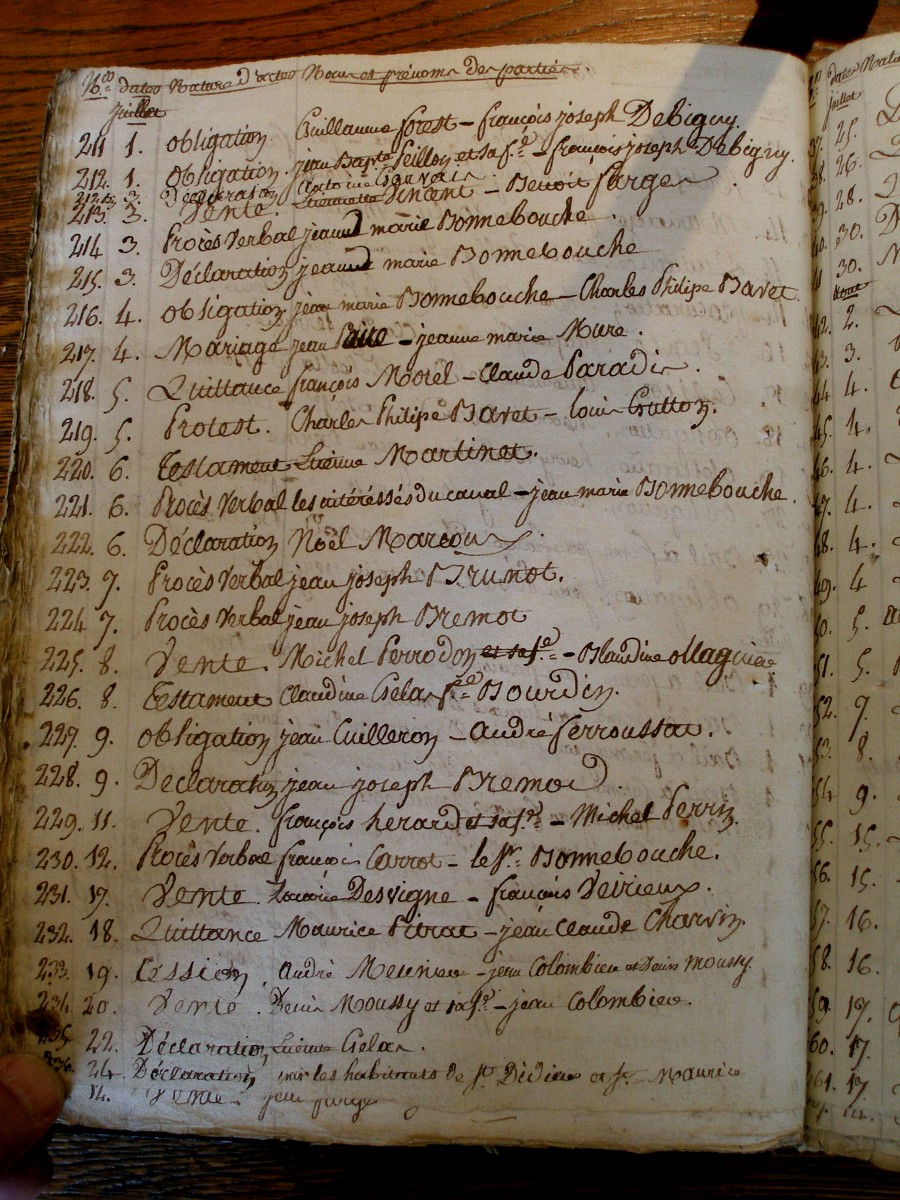 Nos. dates Nature d'actes Noms et prénoms des parties.
juillet
211 1. obligation Guillaume forest - françois joseph Debiguy.
212. 1. obligation jean Bapte Seillon et sa f.e - françois joseph Debiguy.
212 bis 2. Déclaration Antoine Gervais
213. 3. Vente. Vincent - Benoit farges.
214 3. Procès Verbal jean marie Bonnebouche.
215. 3. Déclaration jean marie Bonnebouche
216. 4. obligation jean marie Bonnebouche - Charles Philipe Bavet.
217. 4. Mariage jean - jeanne marie Mure.
218. 5. Quittance françois Morel - Claude Paradis.
219. 5. Protest. Charles Philipe Bavet - louis Coutton.
220. 6. Testament Etienne Martinet.
221. 6. Procès Verbal les intéréssés du canal - jean marie Bonnebouche.
222. 6. Déclaration Noël Marcoux.
223. 7. Procès Verbal jean joseph Brunot.
224 7. Procès Verbal jean joseph Bremot
225. 8. Vente. Michel Perrodon et sa f.e - Blandine ollagnier
226. 8 Testament Claudine Gelas f.e Bourdin.
227. 9. obligation jean Cuilleron - André ferroussat.
228. 9. Declaration jean joseph Bremod
229. 11. Vente. françois herard et sa f.e - Michel Perrin.
230. 12. Procès Verbal françois Carrot - le Sr. Bonnebouche.
231. 17. Vente. Zacarie Desvigne - françois Veirieux.
232. 18. Quittance Maurice Pitrat - jean Claude Charvin
233. 19. Cession André - jean Colombier et Denis Moussy.
234. 20. Vente. Denis Moussy et sa f.e - jean Colombier.
235. 22. Déclaration Etienne Gelas.
236. 24. Déclaration les habitants de St. Didier et St. Maurice
14. Vente jean
juillet
25.
26.
28.
30.
30.
Aout
2.
3.
44 4.
45. 4.
46. 4.
47. 4.
48. 4.
49. 4
50. 5.
51. 5.
52. 7.
53. 8.
54 9.
55. 15.
56. 15.
57. 16.
58. 16.
59. 17.
60. 17.
61. 17
14.